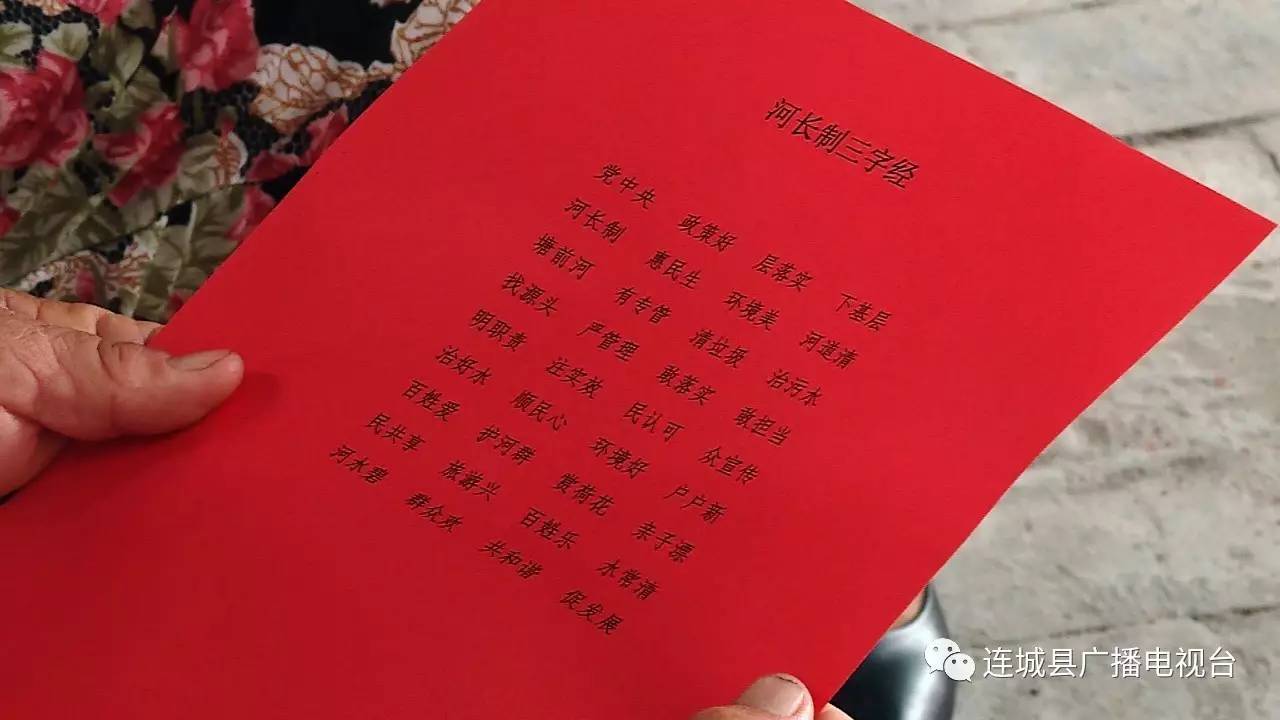 河长制三字经
党中央 政策好 层落实 下基层
河长制 惠民生 环境美 河道清
塘前河 有专管 清垃圾 治污水
找源头 严管理 敢落实 敢担当
明职责 注实效 民认可 众宣传
治好水 顺民心 环境好 户户新
百姓爱 护河群 赏荷花 亲子漂
民共享 旅游兴 百姓乐 水常清
河水碧 群众欢 共和谐 促发展
连城县广播电视台